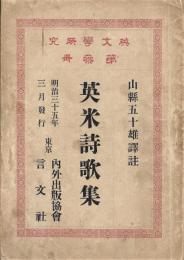 英文學研究
第參冊
山縣五十雄譯註
英米詩歌集
明治三十五年
三月發行
東京
內外出版協會
言文社